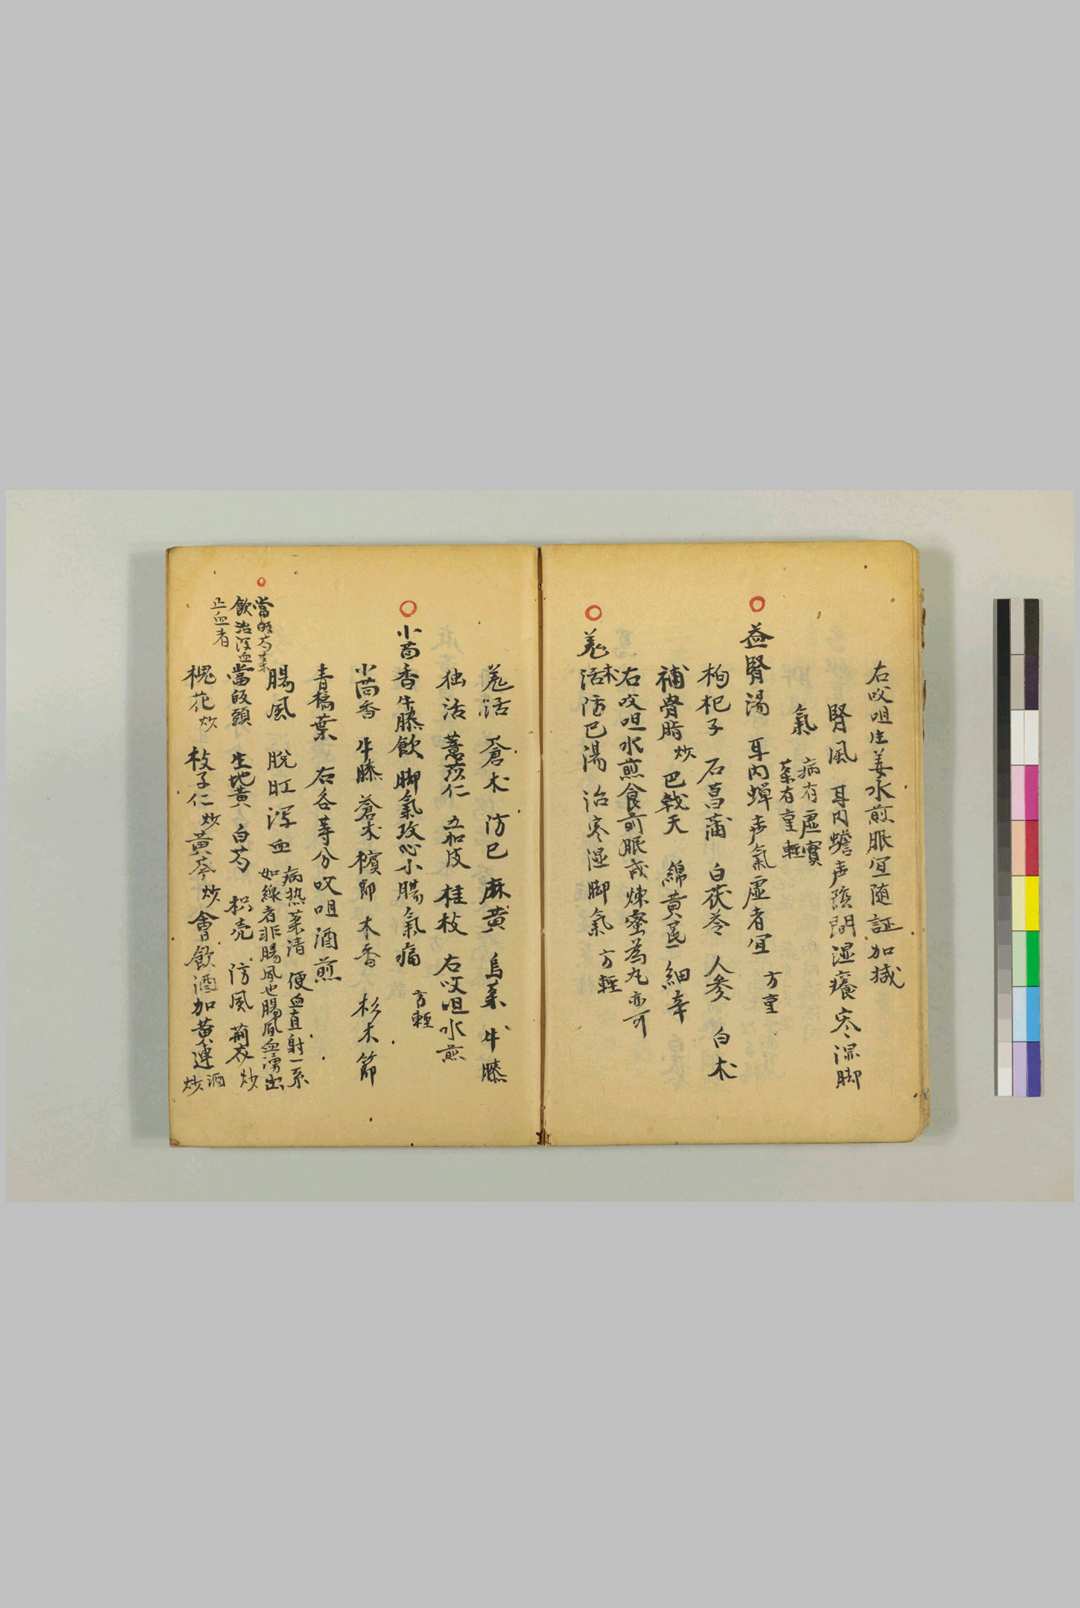 右㕮咀生姜水煎服宜随証加减
腎風 耳内蟾声陰間湿癢寒湿脚
氣 病有虚實
薬有重軽
益腎湯 耳内蝉声氣虚者宜 方重
枸杞子 石菖蒲 白茯苓 人参 白朮
補骨脂炒 巴戟天 綿黄芪 細辛
右㕮咀水煎食前服或煉蜜為丸亦可
羗活防已湯 治寒湿脚氣 方軽
羗活 蒼朮 防已 麻黄 烏薬 牛膝
独活 薏苡仁 五加皮 桂枝 右㕮咀水煎
小茴香牛膝飲 脚氣攻心小腸氣痛 方軽
小茴香 牛膝 蒼朮 檳郎 木香 杉木節
青橘葉 右各等分㕮咀酒煎
腸風 脱肛瀉血 病热薬清 便血直射一糸
如線者非腸風也腸風血湧出
當皈芍薬
飲治瀉血
止血者
當皈頭 生地黄 白芍 枳壳 防風 荊芥炒
槐花炒 枝子仁炒 黄芩炒 會飲酒加黄連酒炒